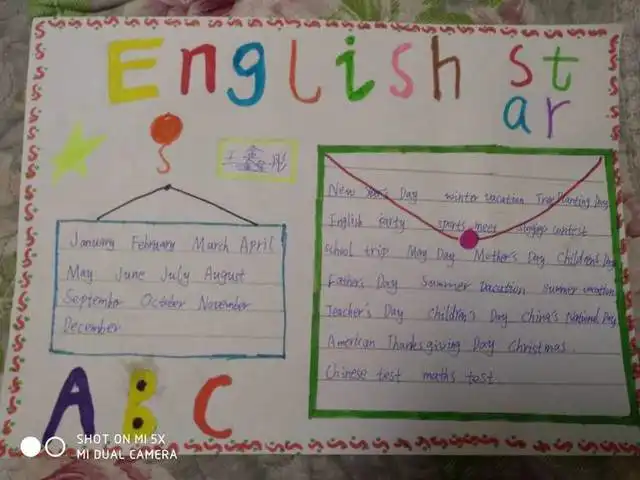 English
St
ar
王鑫彤
January February March April
May June July August
September October November
December
New Year's Day winter vacation Tree Planting Day
English Party sports meet singing contest
school trip May Day Mother's Day Children's Day
Father's Day Summer vacation summer vacation
Teacher's Day Children's Day China's National Day
American Thanksgiving Day Christmas.
Chinese test maths test.
A B C
SHOT ON MI 5X
MI DUAL CAMERA